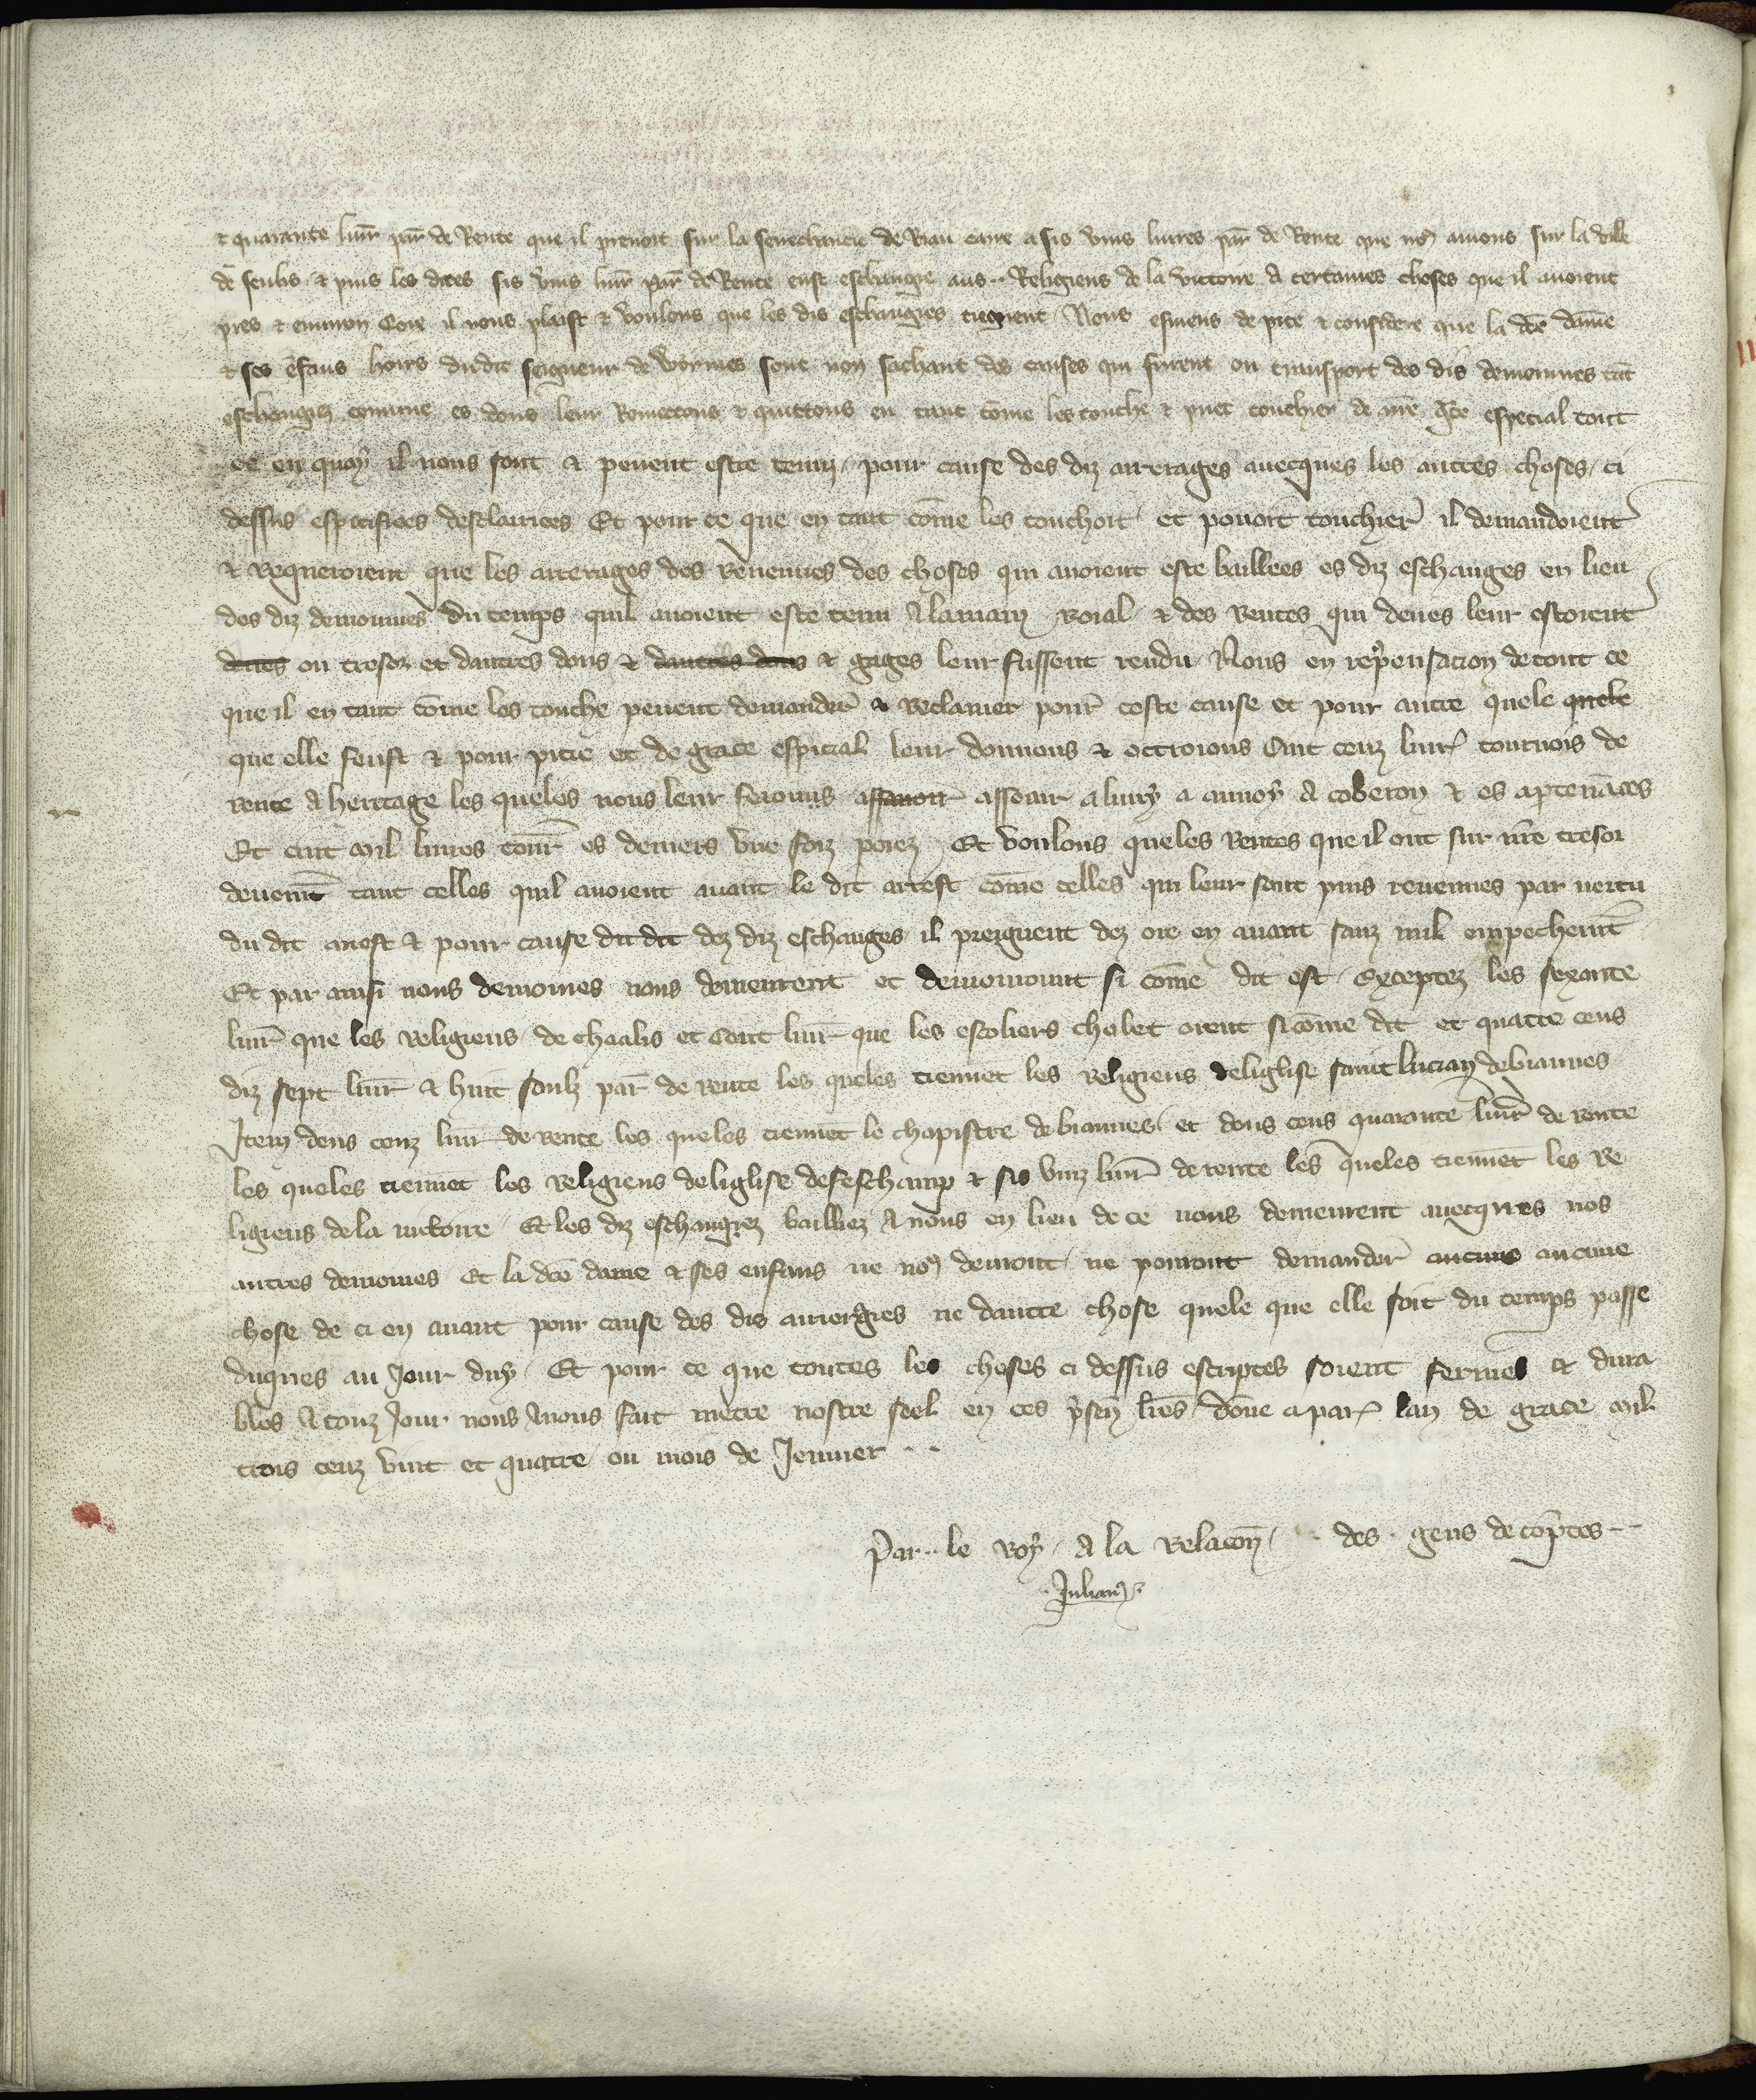 ⁊ quarante liur̄ par̄ de Rente que il prenoit sur la seneschaucie de Biau caire a sis vins liures par̄ de Rente que nꝯ auions sur la ville
de senlis ⁊ puis les dites sis vins liur̄ par̄ de Rente eust eschangie aus Religieus de la victoire a certaines choses que il auoient
pres ⁊ enuiron Coie il nous plaist ⁊ voulons que les dis eschanges tiegnent Nous esmeus de pite ⁊ considere que la dc̄e dame
⁊ ses ēfans hoirs du dit seigneur de sont non sachant des causes qui furent ou transport des dis demoinnes tāt
eschangiez comme es dons leur Remettons ⁊ quittons en tant cōme les touche ⁊ puet touchier de nr̄e gr̄ce especial tout
ce en quoy il nous sont ⁊ peuent estre tenuz pour cause des diz arrerages auecques les autres choses ci
dessus especifiees desclairiees Et pour ce que en tant cōme les touchoit et pouoit touchier il demandoient
⁊ requeroient que les arrerages des reuenues des choses qui auoient este baillees es diz eschanges en lieu
des diz demoinnes du temps quil auoient este tenu a la main roial ⁊ des rentes qui deues leur estoient
deues ou tresor et dautres dons ⁊ dautres dons ⁊ gages leur fussent rendu Nous en recōpensacion de tout ce
que il en tant cōme les touche peuent demander ⁊ reclamer pour ceste cause et pour autre quele quele
que elle feust ⁊ pour pitie et de grace especial leur donnons ⁊ octroions Cuit cenz liur̄ tournois de
rente a heritage les queles nous leur ferons assauoir asseoir a liury a aunoy a coberon ⁊ es apten̄aces
Et cuit mil liures tour̄ es deniers vne foiz poiez Et voulons que les rentes que il ont sur nr̄e tresor
deuemt tant celles quil auoient auant le dit arrest cōme celles qui leur sont puis reuenues par uertu
du dit arrest ⁊ pour cause du dit dez diz eschanges il preignent dez ore en auant sanz nul empechemt
Et par ainsi nous demoines nous demeurent et demorront si cōme dit est Exceptez les sexante
liur̄ que les religieus de chaalis et Cent liur̄ que les escoliers cholet orent si cōme dit et quatre cens
diz sept liur̄ ⁊ huit soulz par̄ de rente les queles tiennēt les religieus de liglise saint lucian de biauues
Item deus cenz liur̄ de rente les queles tiennēt le chapistre de biauues et deus cens quarante liur̄ de rente
les queles tiennēt les religieus de liglise de feschamp ⁊ sis vinz liur̄ de rente les queles tiennēt les re
ligieus de la uictoire Et les diz eschangez bailliez a nous en lieu de ce nous demeurent auecques nos
autres demoines Et la dc̄e dame ⁊ ses enfans ne nꝯ deuront ne pouront demander aucune aucune
chose de ci en auant pour cause des dis arrerages ne dautre chose quele que elle soit du temps passe
duques au Jour duy Et pour ce que toutes les choses ci dessus escriptes soient fermes ⁊ dura
bles a touz Jour nous auons fait mettre nostre seel en ces p̄sen̄ lr̄es dōne a par̄ lan de grace mil
trois cenz vint et quatre ou mois de Jenuier
Par le roy a la relacōn des gens de cōptes
Julian̄